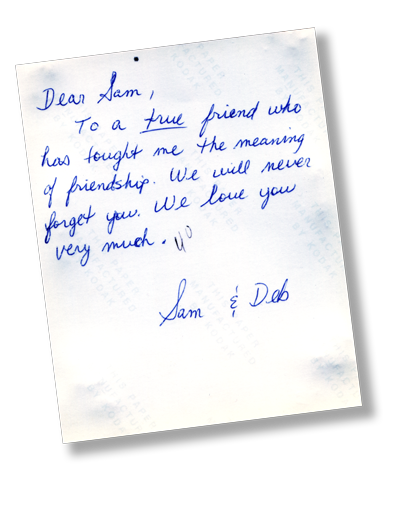 Dear Sam,
To a true friend who
has tought me the meaning
of friendship. We will never
forget you. We love you
very much.
Sam & Deb